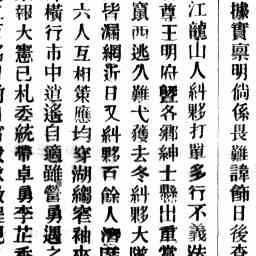 據實稟明倘係畏難諱飾日後查
江龍山人糾夥打單多行不義
尊王明府暨各鄉紳士懸出重賞
竄西逃久難弋獲去冬糾夥大隊
皆漏網近日又糾夥百餘人潛
六人互相策應均穿湖縐窄袖夾
橫行市中逍遙自適雖營勇遇之
報大憲已札委統帶卓勇李芷香